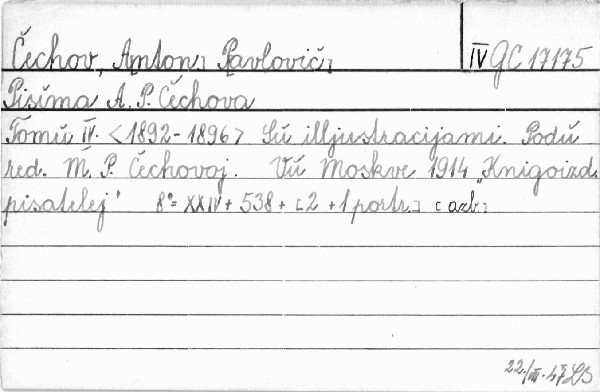 Čechov, [Anton] Pavlovič]
IV GC 17175
Pisíma A. P. Čechova
Tomŭ IV. <1892-1896> Sŭ illjustracijami. Podŭ
red. M. P. Čechovoj. Vŭ Moskve 1914 „Knigoizd.
pisatelej" 8°= XXIV + 538 + [2 + 1 portr.] [azb.]
22/III.47